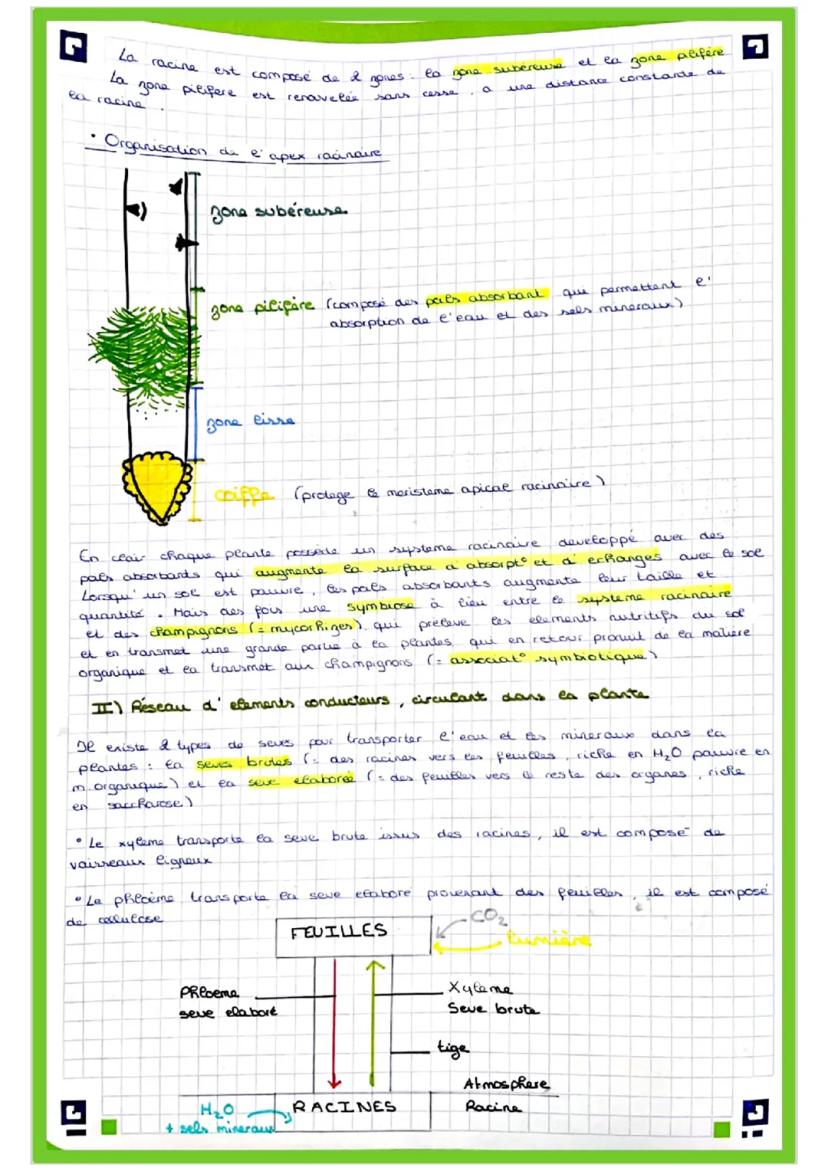 La racine est composé de 2 zones : la zone subéreuse et la zone pilifère
La zone pilifère est renouvelée sans cesse, a une distance constante de
la racine.
• Organisation de l'apex racinaire
zone subéreuse
zone pilifère (composé des poils absorbant qui permettent l'
absorption de l'eau et des sels minéraux)
zone lisse
coiffe (protège le meristeme apical racinaire)
En clair chaque plante possède un système racinaire développé avec des
poils absorbants qui augmente la surface d'absorpt° et d'echanges avec le sol
Lorsqu'un sol est pauvre, les poils absorbants augmente leur taille et
quantité. Mais des fois une symbiose à lieu entre le système racinaire
et des champignons (= mycorhizes), qui prélève les elements nutritifs du sol
et en transmet une grande partie à la plantes, qui en retour produit de la matière
organique et la transmet aux champignons (= associat° symbiotique)
II) Réseau d'elements conducteurs, circulant dans la plante
Il existe 2 types de seves pour transporter l'eau et les mineraux dans la
plantes : la seves brutes (= des racines vers les feuilles, riche en H₂O pauvre en
m.organique) et la seve elaborée (= des feuilles vers le reste des organes, riche
en saccharose)
• Le xyleme transporte la seve brute issus des racines, il est composé de
vaisseaux ligneux
• Le phloème transporte la seve elaboré provenant des feuilles, il est composé
de cellulose
FEUILLES
CO₂
lumière
Phloeme
seve elaboré
Xyleme
Seve brute
tige
Atmosphere
Racine
RACINES
H₂O
+ sels mineraux